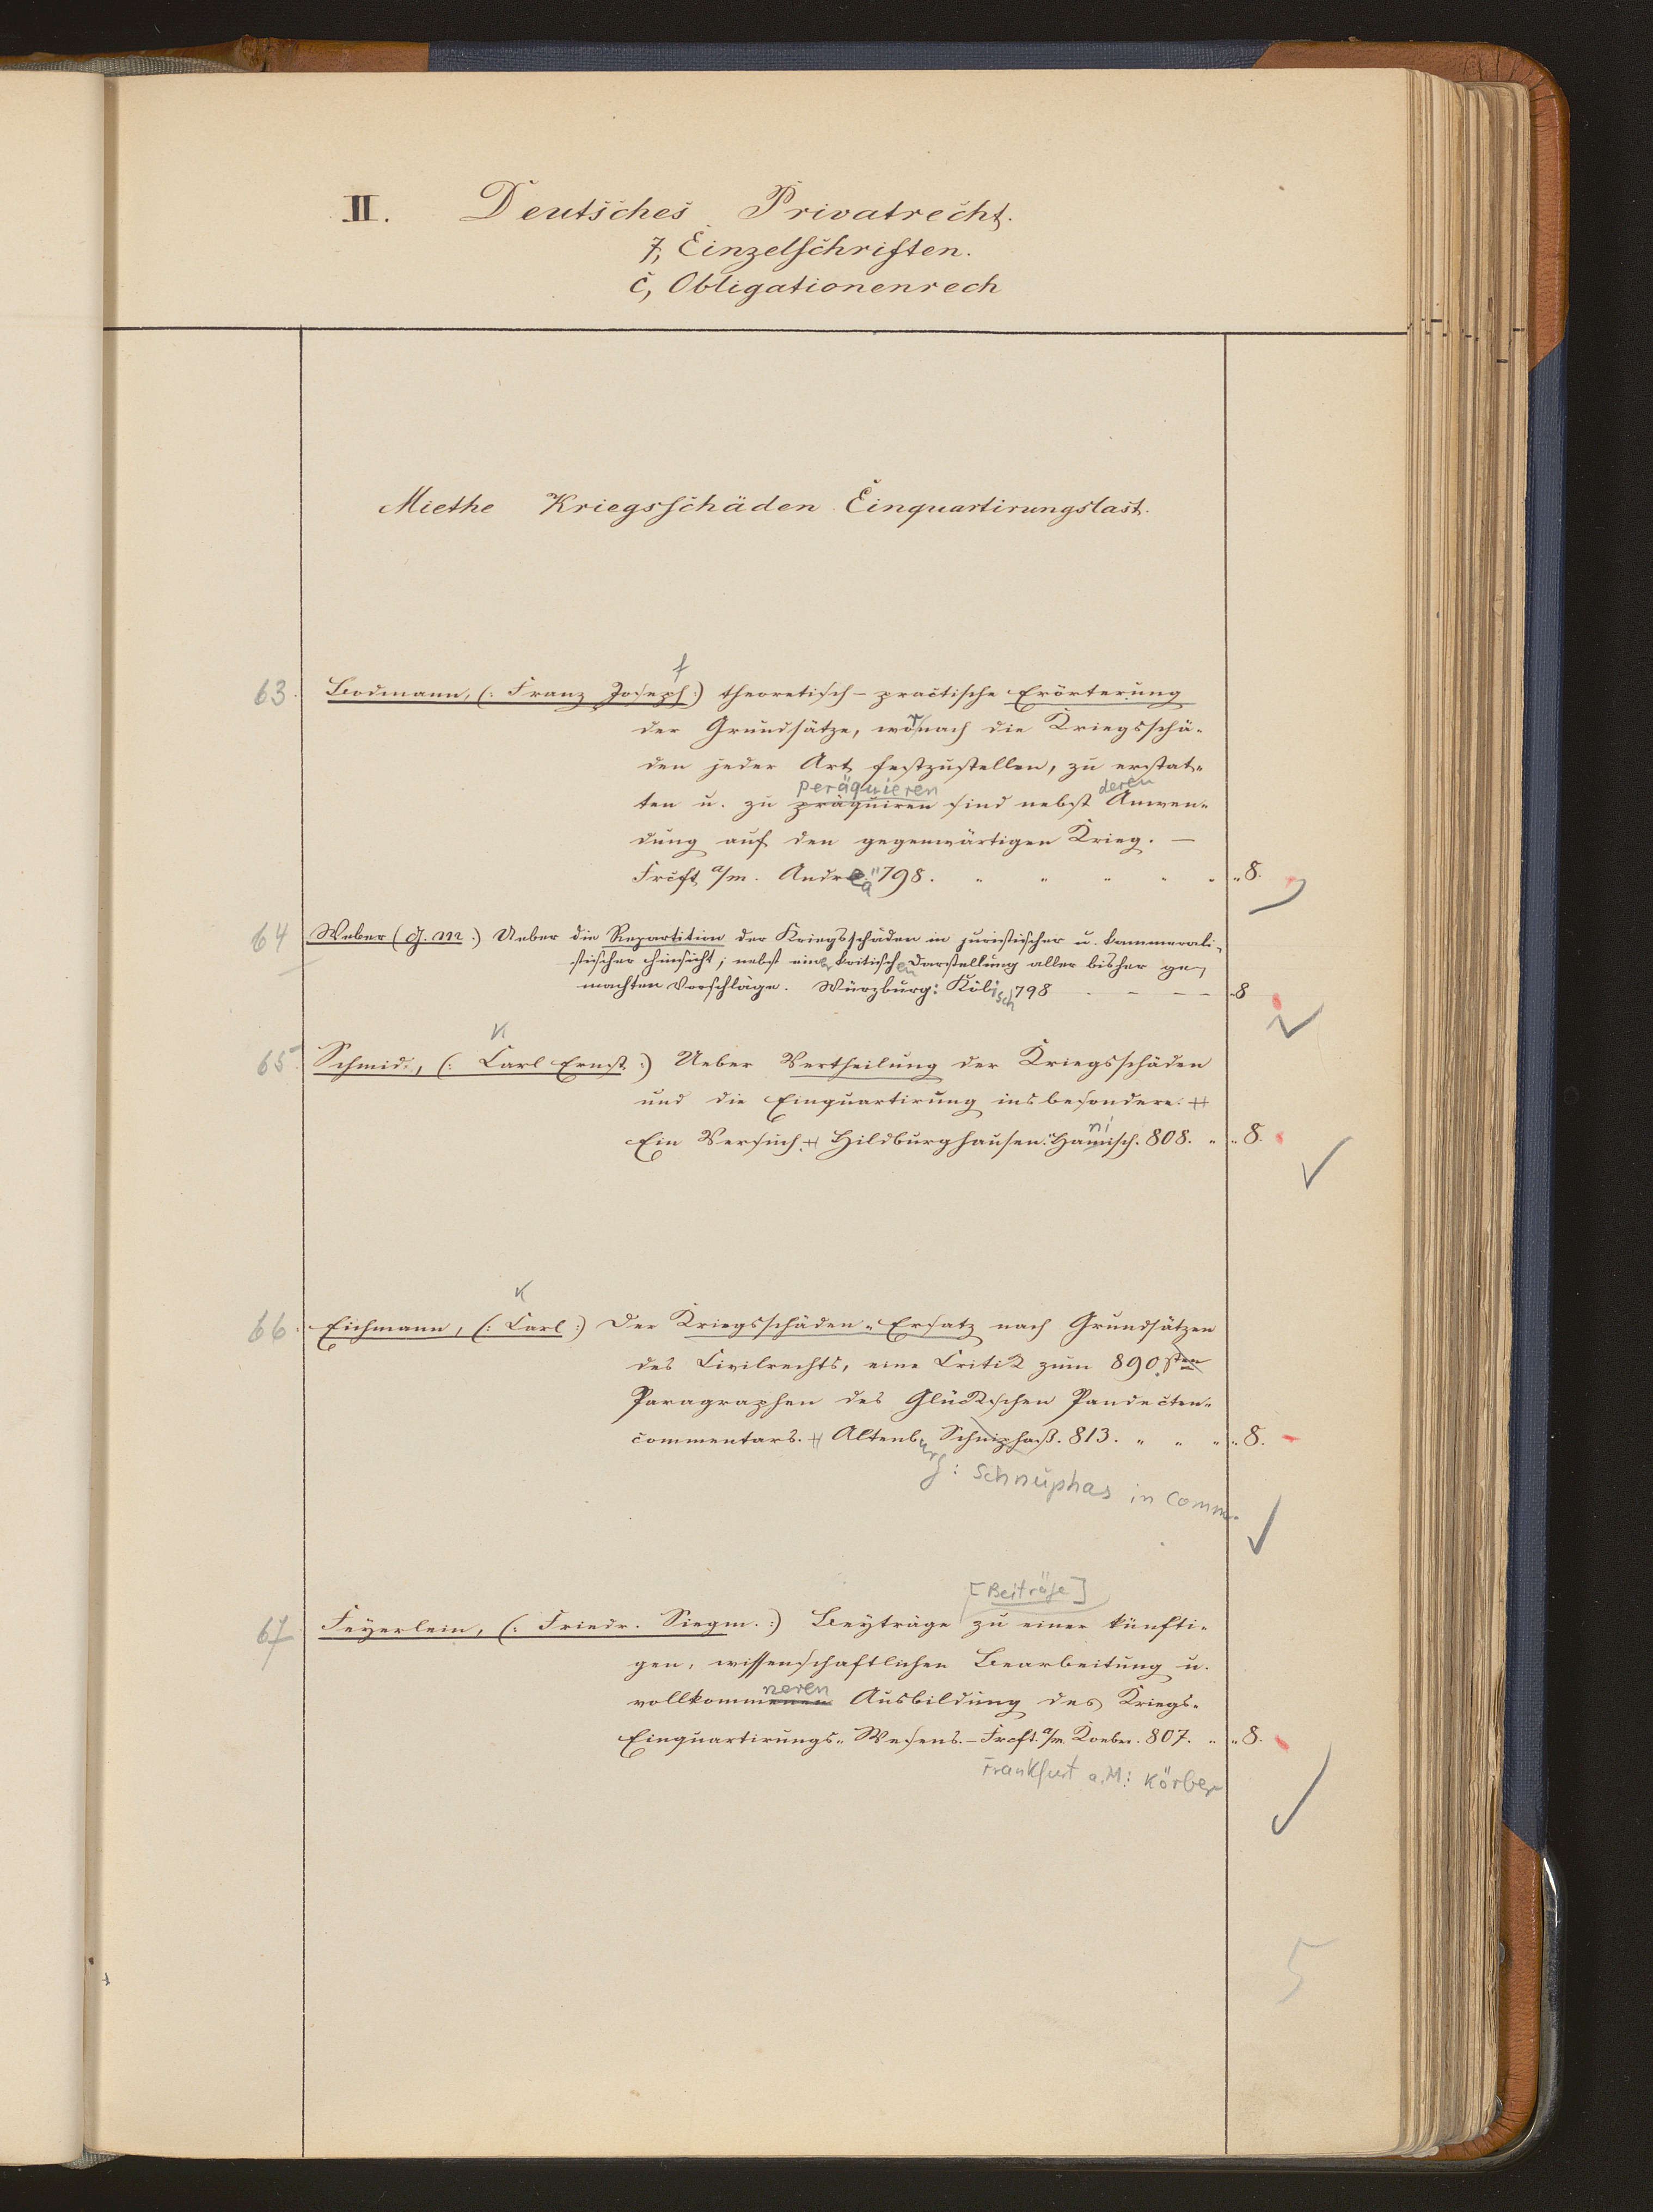 II. Deutsches Privatrecht.
7, Einzelschriften.
c, Obligationenrech
Miethe Kriegsschäden Einquartirungslast.
f
63. Bodmann, (: Franz Joseph :) theoretisch-practische Erörterung
der Grundsätze, wornach die Kriegsschä-
den jeder Art festzustellen, zu erstat-
peräquieren deren
ten u. zu präquiren sind nebst Anwen-
dung auf den gegenwärtigen Krieg. —
Frcft a/m. Andreä 798. " " " " " " 8.
64 Weber (J. M.) Ueber die Repartition der Kriegsschäden in juristischer u. kammerali-
stischer Hinsicht; nebst einer kritischen Darstellung aller bisher ge-
machten Vorschläge. Würzburg: Köl sch 798 - - - - 8
K
65. Schmid, (: Carl Ernst :) Ueber Vertheilung der Kriegsschäden
und die Einquartirung insbesondere: #
ni
Ein Versuch. # Hildburghausen: Hanisch. 808. " " 8.
K
66. Eichmann, (: Carl :) Der Kriegsschäden-Ersatz nach Grundsätzen
des Civilrechts, eine Critik zum 890.sten
Paragraphen des Glückschen Pandecten-
commentars. # Altenburg Schniphaß. 813. " " " " 8.
: Schnuphas in Comm.
[Beiträge]
67. Feyerlein, (: Friedr. Siegm. :) Beyträge zu einer künfti-
gen, wissenschaftlichen Bearbeitung u.
neren
vollkommenen Ausbildung des Kriegs-
Einquartirungs-Wesens. - Frcft. a/m. Koeber. 807. " " 8.
Frankfurt a.M: Körber
5